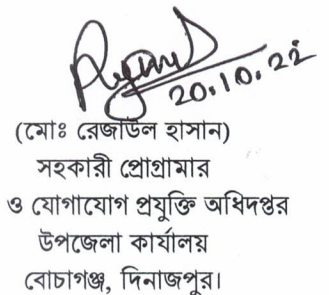 20.10.22
(মোঃ রেজাউল হাসান)
সহকারী প্রোগ্রামার
ও যোগাযোগ প্রযুক্তি অধিদপ্তর
উপজেলা কার্যালয়
বোচাগঞ্জ, দিনাজপুর।